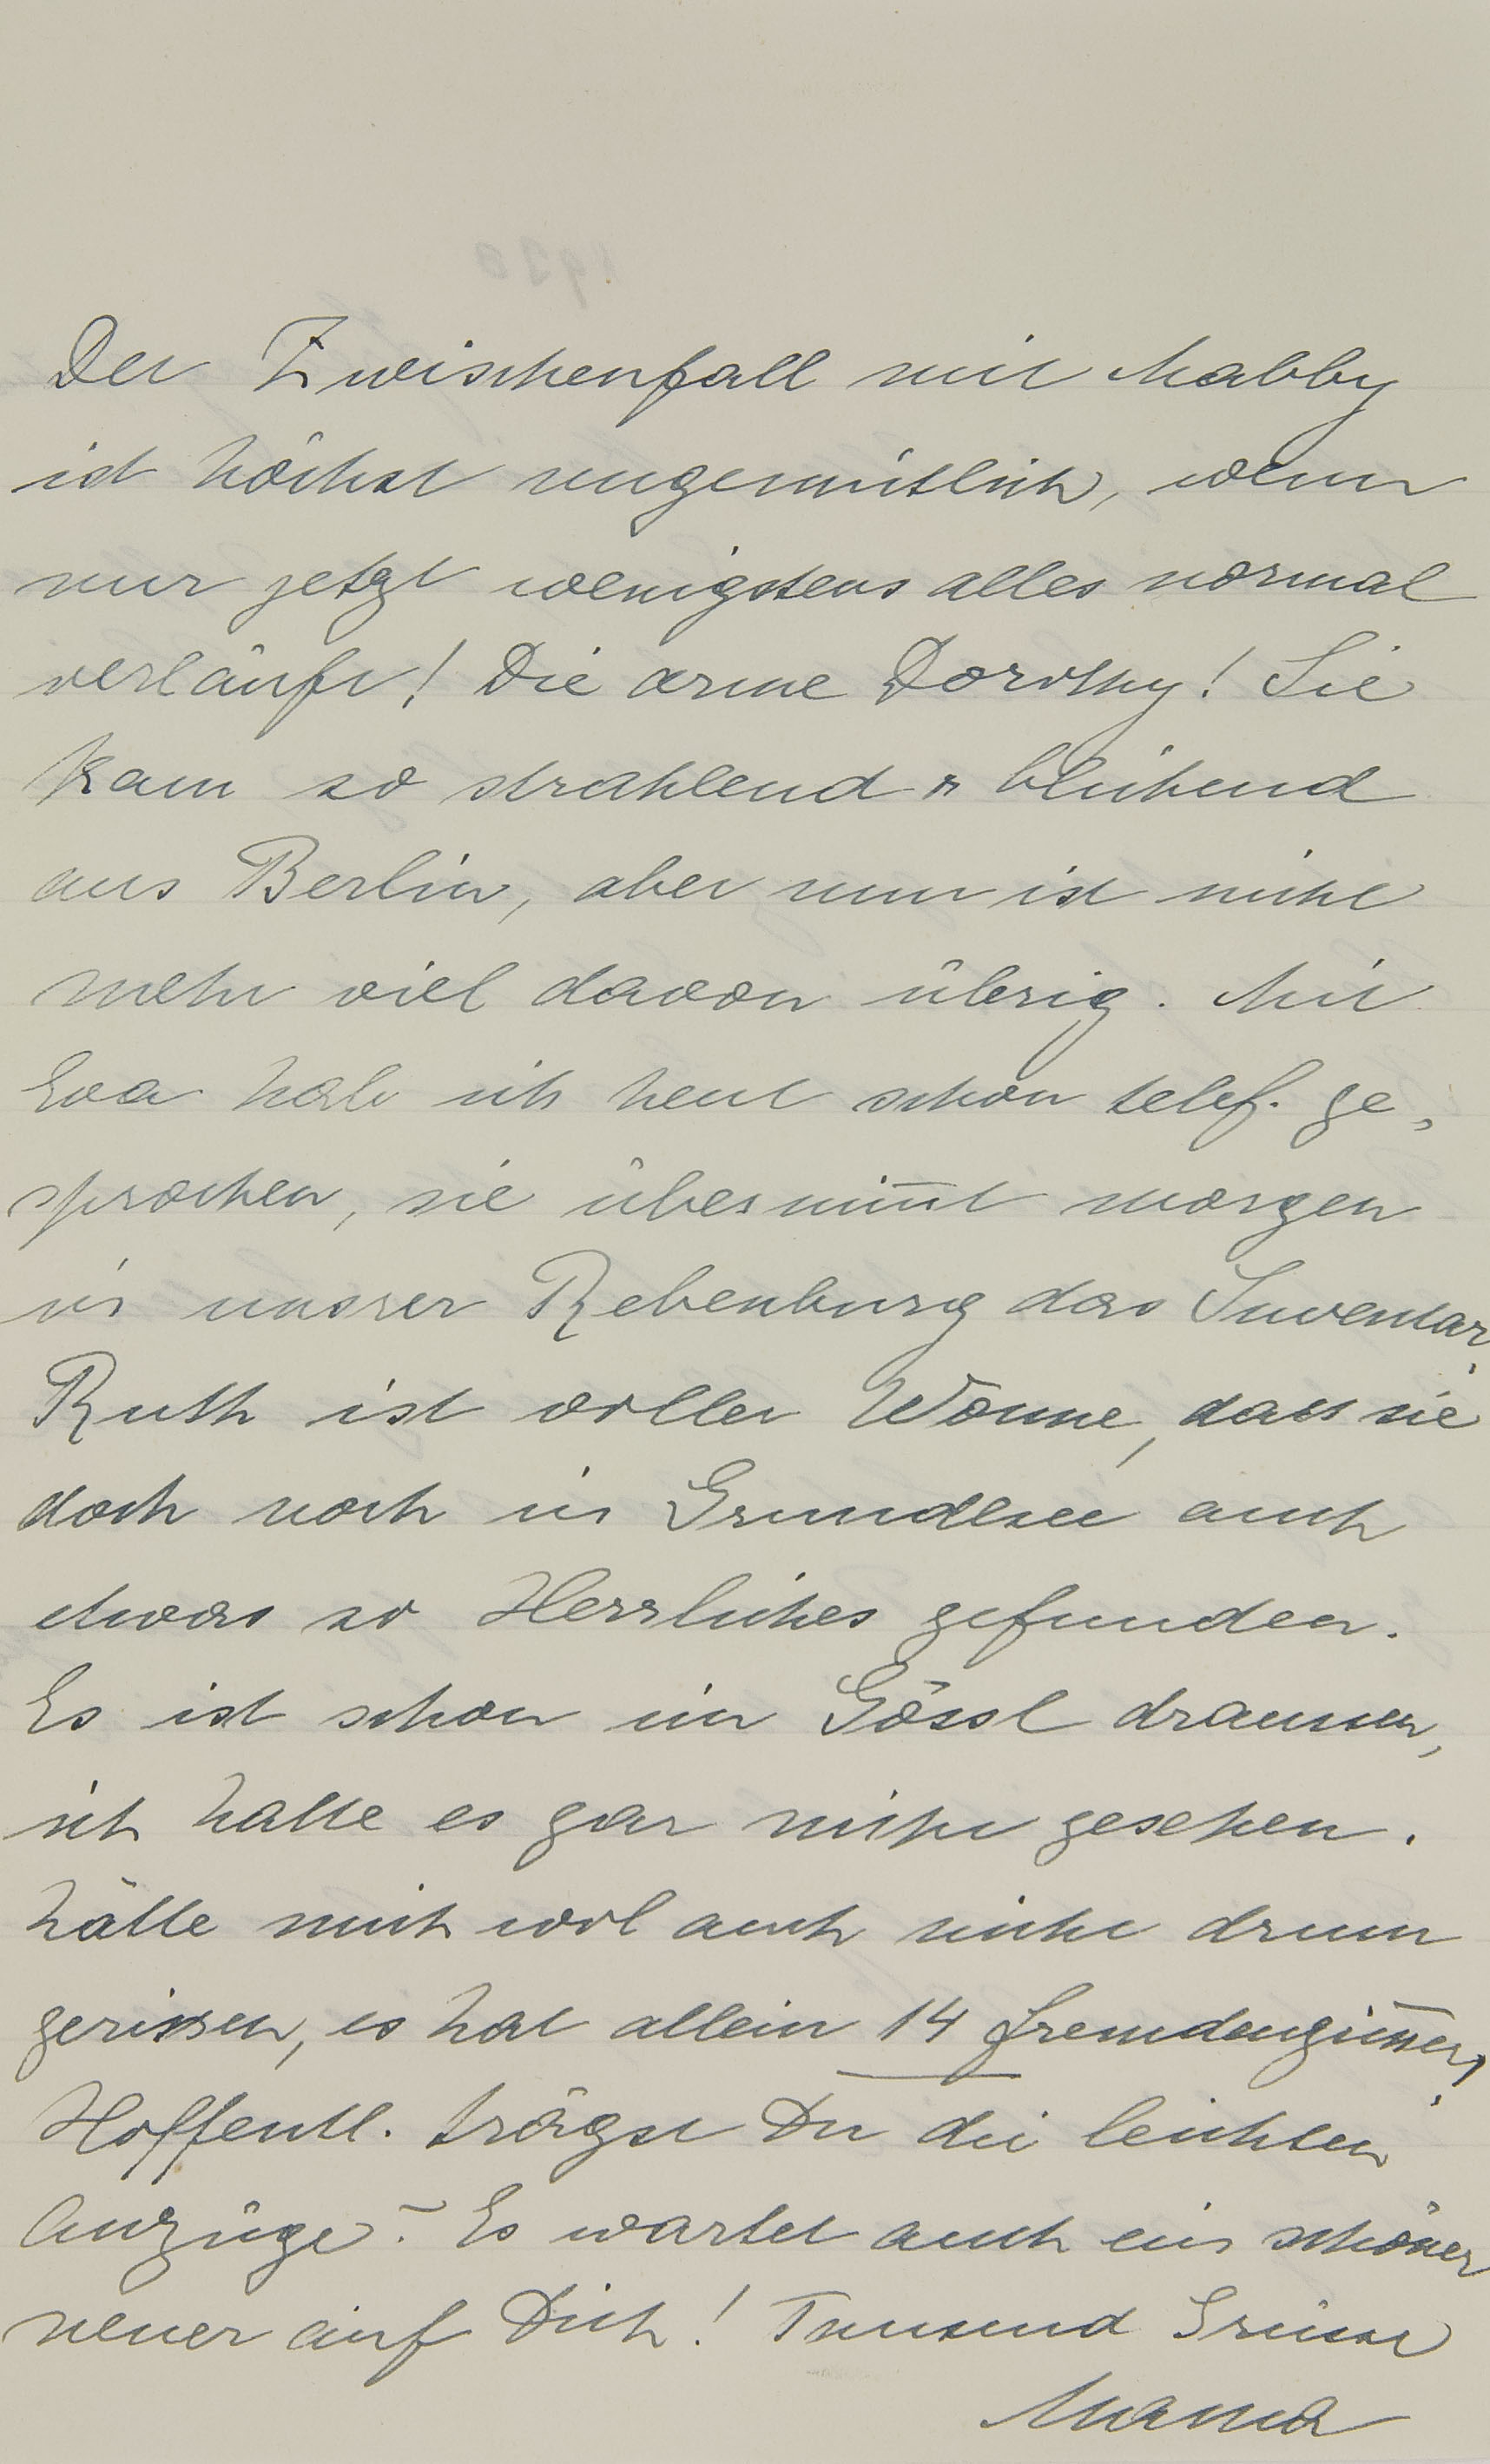 Der Zwischenfall mit Mabby
ist höchst ungemütlich, wenn
nur jetzt wenigstens alles normal
verläuft! Die arme Dorothy! Sie
kam so strahlend u blühend
aus Berlin, aber nun ist nicht
mehr viel davon übrig. Mit
Eva hab ich heut schon telef. ge-
sprochen, sie übernim̅t morgen
in unsrer Rebenburg das Inventar.
Ruth ist voller Wonne, dass sie
doch noch in Grundlsee auch
etwas so Herrliches gefunden.
Es ist schon in Gössl draussen,
ich hatte es gar nicht gesehen.
hätte mich wol auch nicht drum
gerissen, es hat allein 14 Fremdenzim̅er,
Hoffentl. trägst Du die leichten
Anzüge? Es wartet auch ein schöner
neuer auf Dich! Tausend Grüsse
Mama